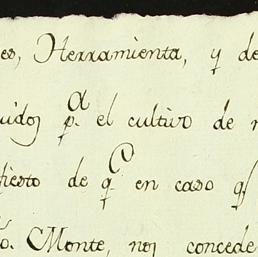 es, Herramienta, y de
uidos pa. el cultivo de
fiesto de qe en caso qe
o. Monte, nos concede